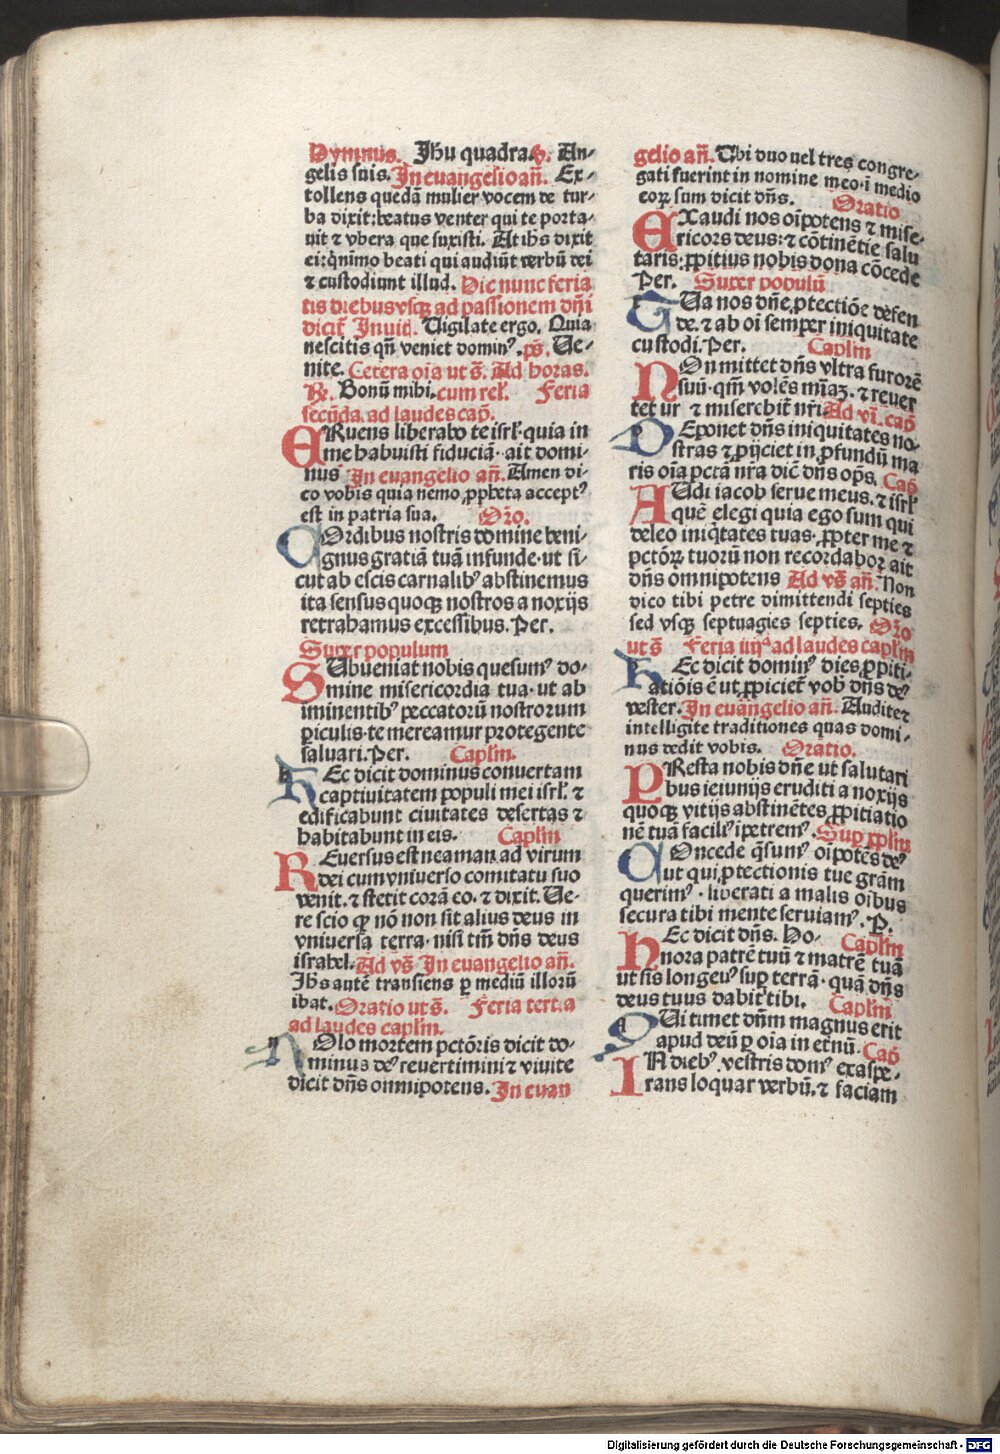 Hymnus. Jhu quadra. v̄. An-
gelis suis. In euangelio añ. Ex-
tollens quedā mulier vocem de tur-
ba dixit: beatus venter qui te porta-
uit ⁊ vbera que suxisti. At ihs dixit
ei: qͥnimo beati qui audiūt verbū dei
⁊ custodiunt illud. Hic nunc feria
tis diebus vsqꝫ ad passionem dñi
dicit̃ Inuit. Uigilate ergo. Quia
nescitis qñ veniet dominꝰ. ps̄. Ue-
nite. Cetera oīa ut s̄. Ad horas.
℞. Bonū mihi. cum rel̃. Feria
secūda. ad laudes cap̄.
ERuens liberabo te isrl̃· quia in
me habuisti fiduciā· ait domi-
nus In euangelio añ. Amen di-
co vobis quia nemo ꝓpheta acceptꝰ
est in patria sua. Or̄o.
COrdibus nostris domine beni-
gnus gratiā tuā infunde· ut si-
cut ab escis carnalibꝰ abstinemus
ita sensus quoqꝫ nostros a noxijs
retrahamus excessibus. Per.
Super populum
SUbueniat nobis quesumꝰ do-
mine misericordia tua· ut ab
iminentibꝰ peccatorū nostrorum
ꝑiculis· te mereamur protegente
saluari. Per. Capl̃m.
HEc dicit dominus conuertam
captiuitatem populi mei isrl̃· ⁊
edificabunt ciuitates desertas ⁊
habitabunt in eis. Capl̃m
REuersus est neaman ad virum
dei cum vniuerso comitatu suo
venit. ⁊ stetit corā eo. ⁊ dixit. Ue-
re scio qꝙ nō non sit alius deus in
vniuersa terra· nisi tm̄ dñs deus
israhel. Ad vs̄ In euangelio añ.
Jhs autē transiens ꝑ mediū illorū
ibat. Oratio ut s̄. Feria tertia
ad laudes capl̃m.
NOlo mortem pctōris dicit do-
minus deꝰ reuertimini ⁊ viuite
dicit dñs omnipotens. In euan
gelio añ. Ubi duo uel tres congre-
gati fuerint in nomine meo· ī medio
eoꝝ sum dicit dñs. Oratio
EXaudi nos oīpotens ⁊ mise-
ricors deus: ⁊ cōtinētie salu
taris ꝓpitius nobis dona cōcede
Per. Super populū
TUa nos dñe ꝓtectiōe defen
de. ⁊ ab oī semper iniquitate
custodi. Per. Capl̃m
NOn mittet dñs vltra furorē
suū· qm̄ volēs mīaꝫ. ⁊ reuer
tetur ⁊ miserebit̃ nr̄i. Ad vī. cap̄
DEponet dñs iniquitates no-
stras ⁊ ꝓijciet in ꝓfundū ma
ris oīa pctā nr̄a dic̄ dñs op̄s. Cap̄
AUdi iacob serue meus. ⁊ isrl̃
quē elegi quia ego sum qui
deleo iniqͥtates tuas· ꝓpter me ⁊
pctōꝝ tuorū non recordaboꝛ ait
dñs omnipotens Ad vs̄ añ. Non
dico tibi petre dimittendi septies
sed vsqꝫ septuagies septies. Or̄o
ut s̄ Feria iiijᵃ ad laudes capl̃m
HEc dicit dominꝰ dies ꝓpiti-
atiōis ē ut ꝓpiciet̃ vob̃ dñs deꝰ
vester. In euangelio añ. Audite ⁊
intelligite traditiones quas domi-
nus dedit vobis. Oratio.
PResta nobis dñe ut salutari
bus ieiunijs eruditi a noxijs
quoqꝫ vitijs abstinētes ꝓpitiatio
nē tuā facilꝰ īpetremꝰ. Suꝑ ppl̃m
COncede qͥsumꝰ oīpotēs deꝰ
ut qui ꝓtectionis tue grām
querimꝰ· liberati a malis oībus
secura tibi mente seruiamꝰ. P.
HEc dicit dñs. Ho- Capl̃m
nora patrē tuū ⁊ matrē tuā
ut sis longeuꝰ suꝑ terrā· quā dñs
deus tuus dabit tibi. Capl̃m
QUi timet dñm magnus erit
apud deū ꝑ oīa in eternū. Cap̄
IN diebꝰ vestris domꝰ exaspe-
rans loquar verbū. ⁊ faciam
Digitalisierung gefördert durch die Deutsche Forschungsgemeinschaft - DFG